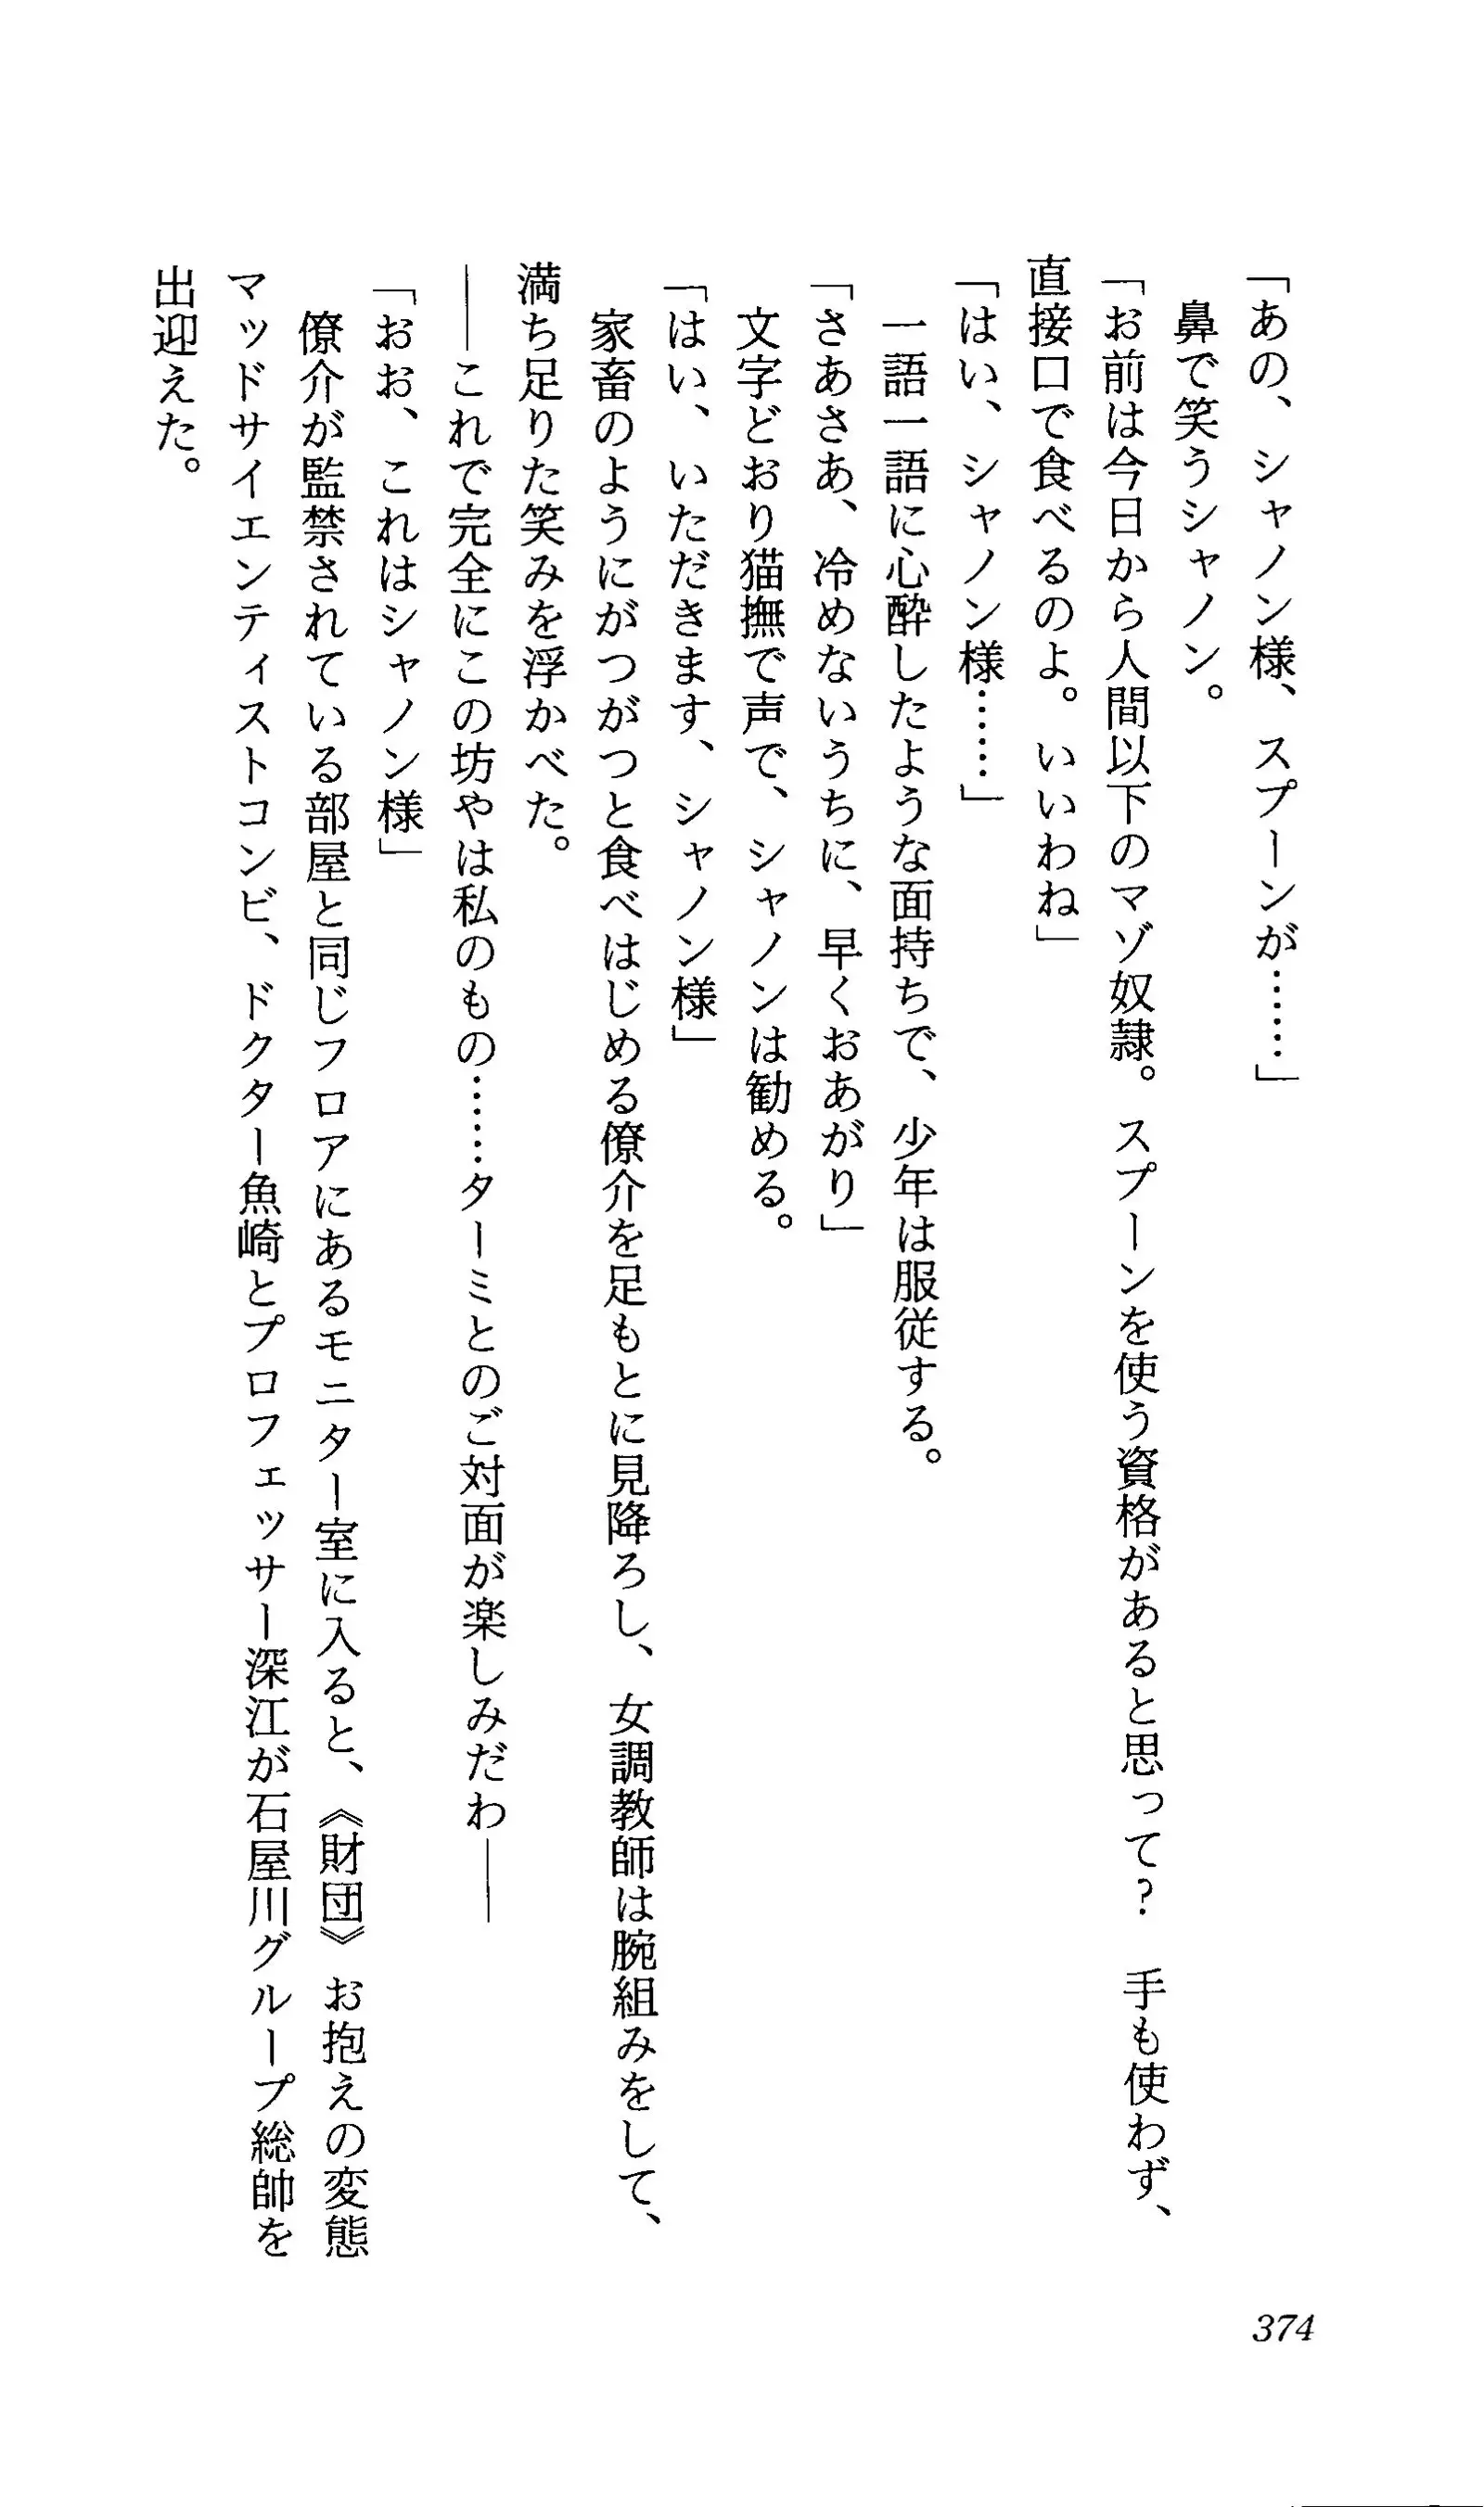 「あの、シャノン様、スプーンが……」
鼻で笑うシャノン。
「お前は今日から人間以下のマゾ奴隷。スプーンを使う資格があると思って? 手も使わず、
直接口で食べるのよ。いいわね」
「はい、シャノン様……」
一語一語に心酔したような面持ちで、少年は服従する。
「さあさあ、冷めないうちに、早くおあがり」
文字どおり猫撫で声で、シャノンは勧める。
「はい、いただきます、シャノン様」
家畜のようにがつがつと食べはじめる僚介を足もとに見降ろし、女調教師は腕組みをして、
満ち足りた笑みを浮かべた。
――これで完全にこの坊やは私のもの……ターミとのご対面が楽しみだわ――
「おお、これはシャノン様」
僚介が監禁されている部屋と同じフロアにあるモニター室に入ると、《財団》お抱えの変態
マッドサイエンティストコンビ、ドクター魚崎とプロフェッサー深江が石屋川グループ総帥を
出迎えた。
374